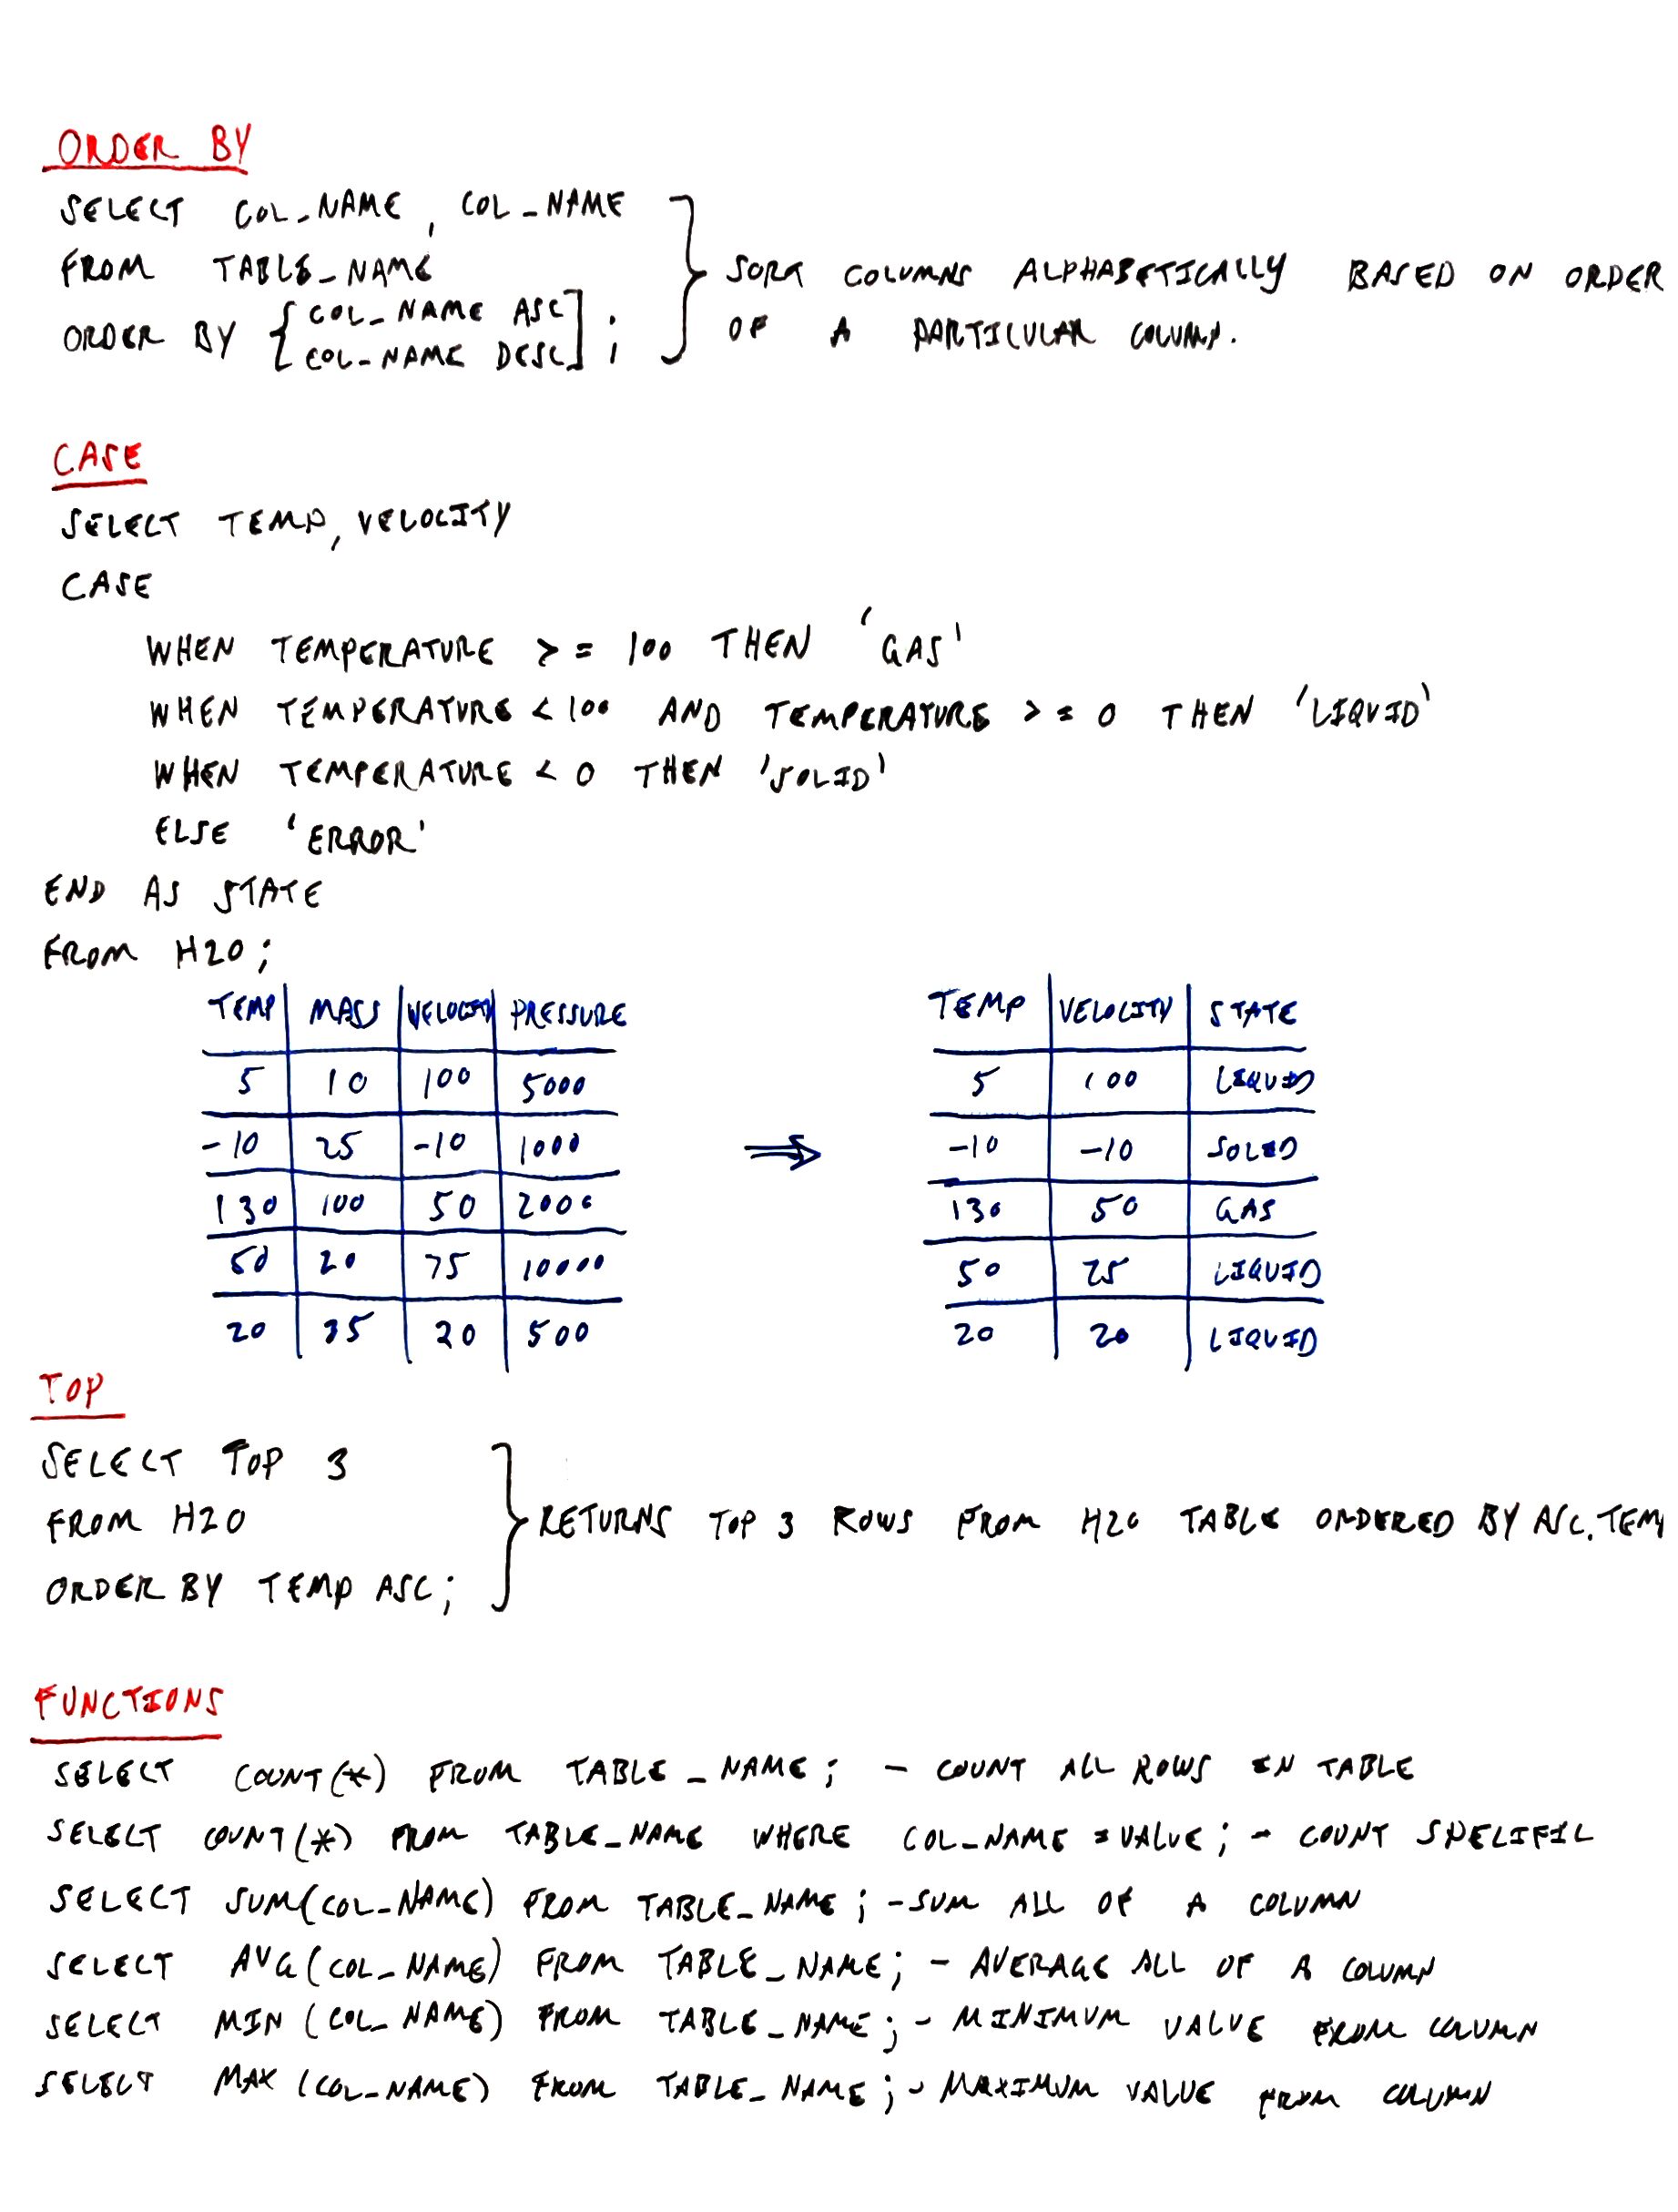 ORDER BY
SELECT COL_NAME, COL_NAME
FROM TABLE_NAME
ORDER BY { COL_NAME ASC
COL_NAME DESC ] ;
} SORT COLUMNS ALPHABETICALLY BASED ON ORDER
OF A PARTICULAR COLUMN.
CASE
SELECT TEMP, VELOCITY
CASE
WHEN TEMPERATURE >= 100 THEN 'GAS'
WHEN TEMPERATURE < 100 AND TEMPERATURE >= 0 THEN 'LIQUID'
WHEN TEMPERATURE < 0 THEN 'SOLID'
ELSE 'ERROR'
END AS STATE
FROM H2O;
TEMP | MASS | VELOCITY | PRESSURE
5 | 10 | 100 | 5000
-10 | 25 | -10 | 1000
130 | 100 | 50 | 2000
50 | 20 | 75 | 10000
20 | 35 | 20 | 500
⇒
TEMP | VELOCITY | STATE
5 | 100 | LIQUID
-10 | -10 | SOLID
130 | 50 | GAS
50 | 75 | LIQUID
20 | 20 | LIQUID
TOP
SELECT TOP 3
FROM H2O
ORDER BY TEMP ASC;
} RETURNS TOP 3 ROWS FROM H2O TABLE ORDERED BY ASC. TEM
FUNCTIONS
SELECT COUNT(*) FROM TABLE_NAME; - COUNT ALL ROWS IN TABLE
SELECT COUNT(*) FROM TABLE_NAME WHERE COL_NAME = VALUE; - COUNT SPECIFIC
SELECT SUM(COL_NAME) FROM TABLE_NAME; - SUM ALL OF A COLUMN
SELECT AVG(COL_NAME) FROM TABLE_NAME; - AVERAGE ALL OF A COLUMN
SELECT MIN (COL_NAME) FROM TABLE_NAME; - MINIMUM VALUE FROM COLUMN
SELECT MAX (COL_NAME) FROM TABLE_NAME; - MAXIMUM VALUE FROM COLUMN